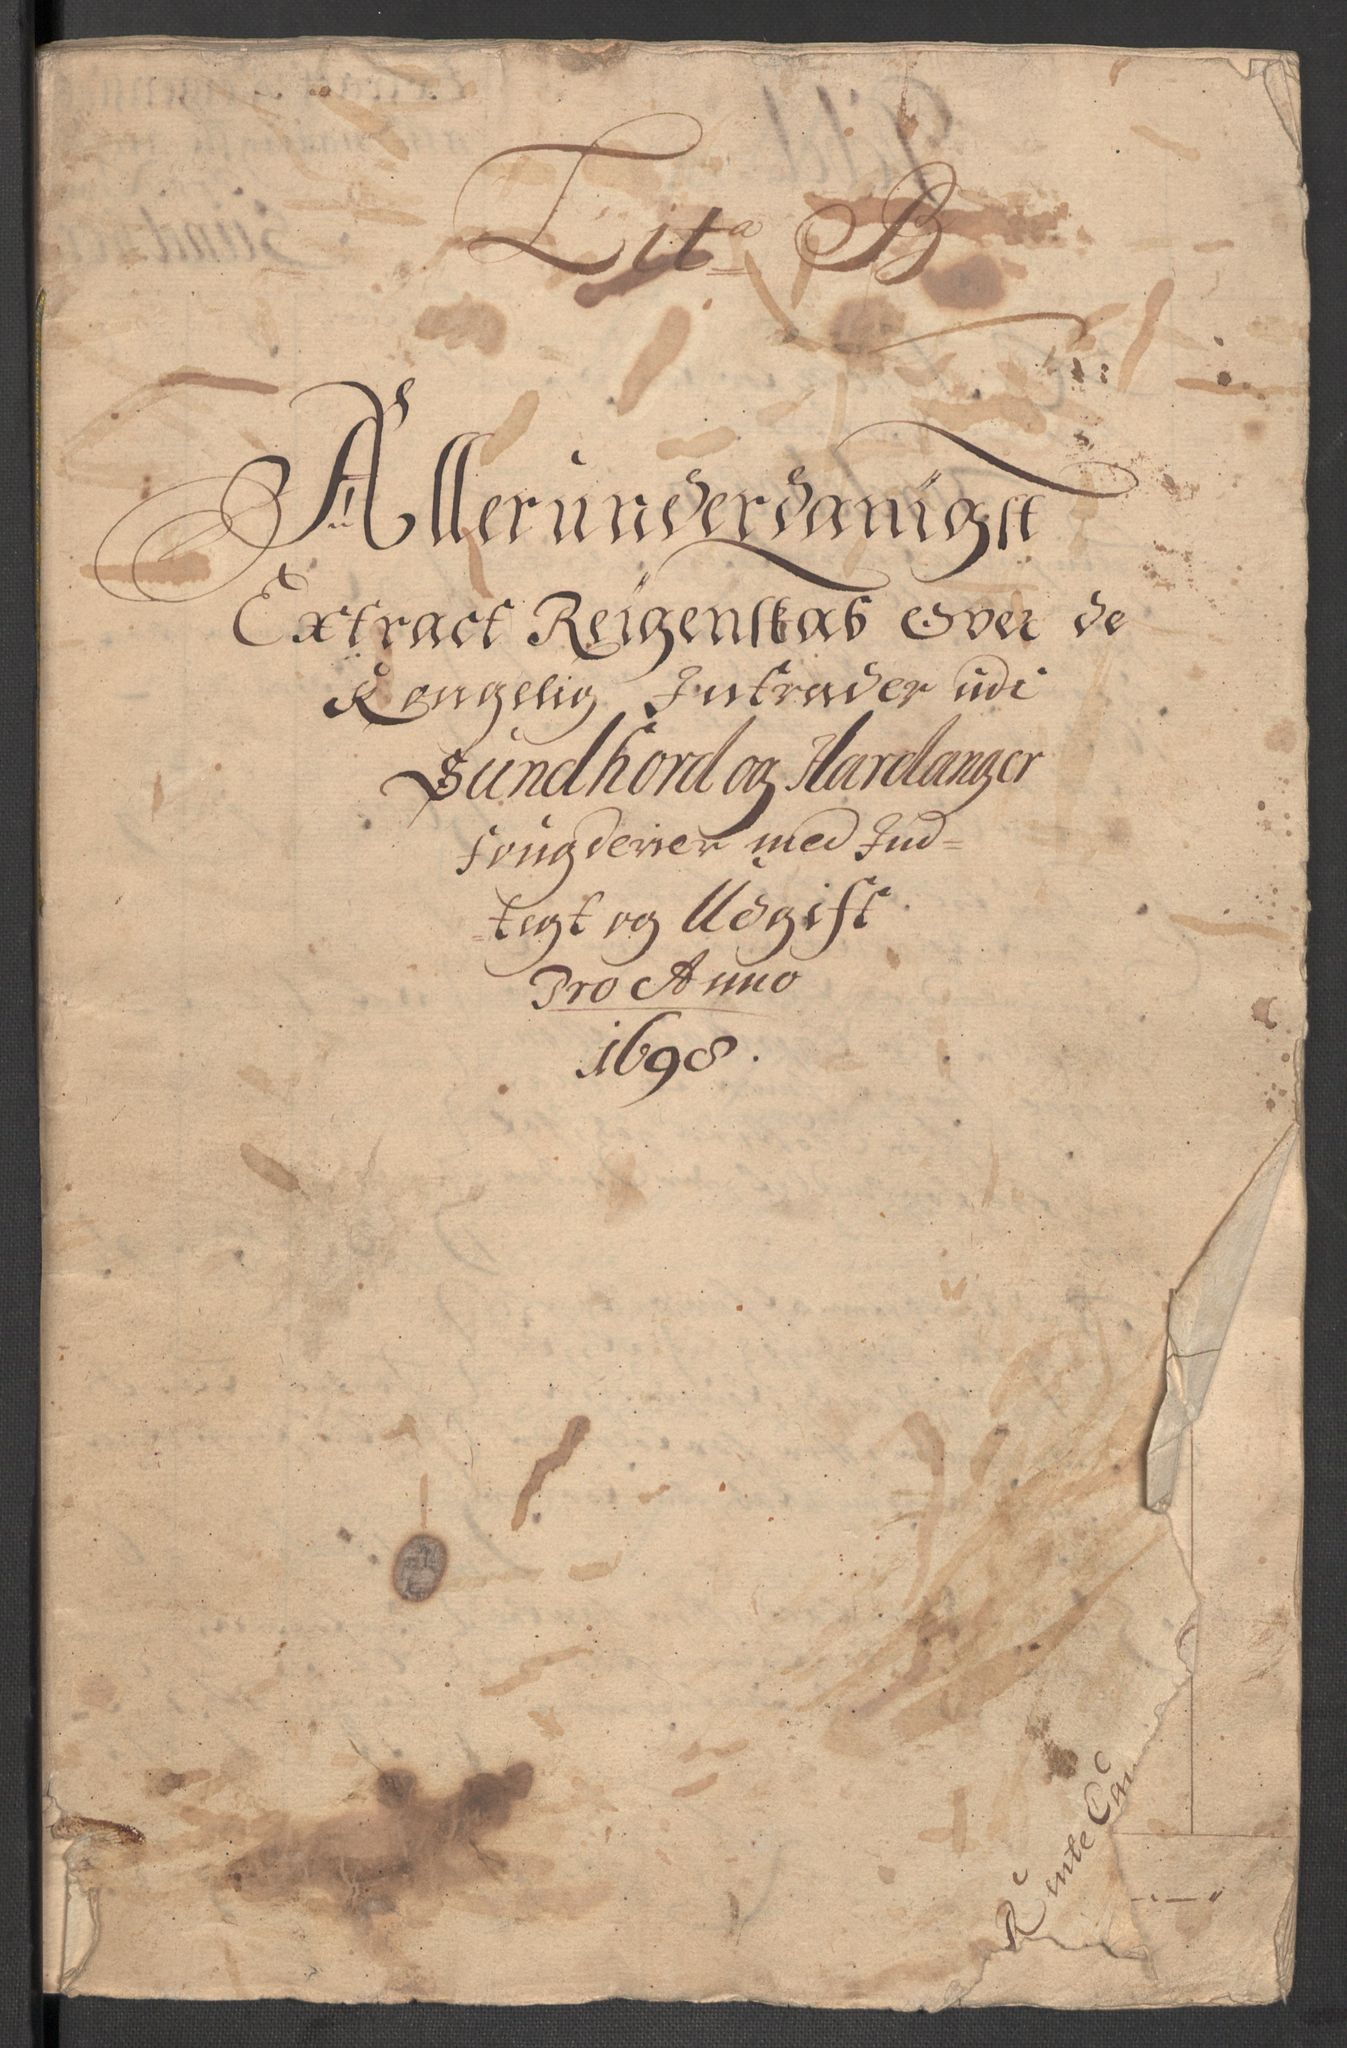 Lit<sup>a</sup> B
Allerunderdanigst
Extract Reigenskab Over de
Kongelig Intrader udi
Sundhord og Hardanger
fougderier med Ind=
tegt og Udgift
Pro Anno
1698.
Rente Cam